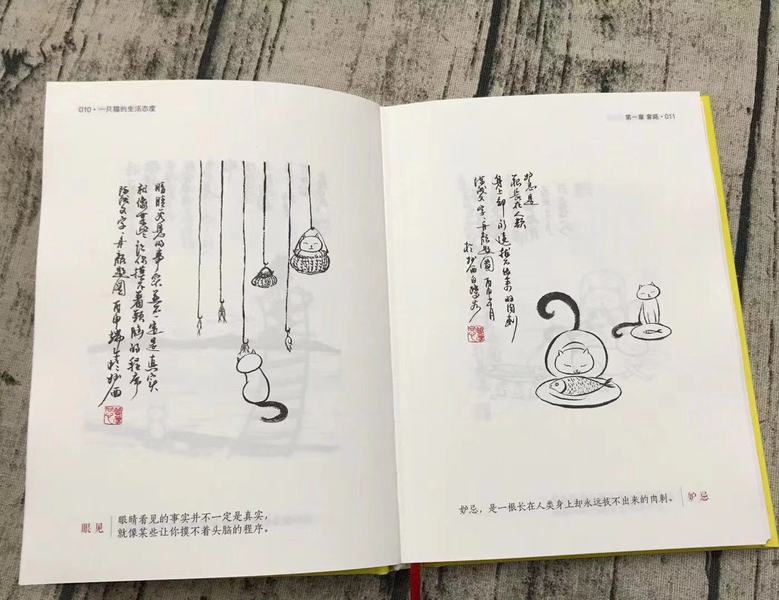 010·一只猫的生活态度
眼睛看见的事实并不一定是真实
就像某些让你摸不着头脑的程序
文字 题图 丙申端午於
眼见
眼睛看见的事实并不一定是真实，
就像某些让你摸不着头脑的程序。
第一章 套路·011
妒忌是
一根长在人类
身上却永远拔不出来的肉刺
文字 题图 丙申
妒忌，是一根长在人类身上却永远拔不出来的肉刺。
妒忌